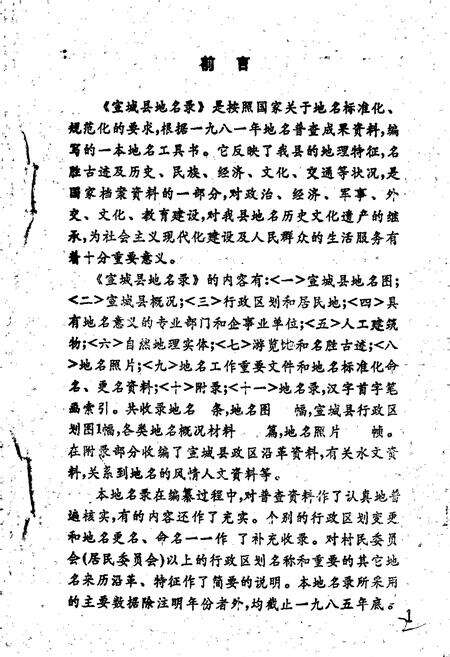 前言
《宣城县地名录》是按照国家关于地名标准化、
规范化的要求，根据一九八一年地名普查成果资料，编
写的一本地名工具书。它反映了我县的地理特征，名
胜古迹及历史、民族、经济、文化、交通等状况，是
国家档案资料的一部分，对政治、经济、军事、外
交、文化、教育建设，对我县地名历史文化遗产的继
承，为社会主义现代化建设及人民群众的生活服务有
着十分重要意义。
《宣城县地名录》的内容有：<一>宣城县地名图；
<二>宣城县概况；<三>行政区划和居民地；<四>具
有地名意义的专业部门和企事业单位；<五>人工建筑
物；<六>自然地理实体；<七>游览地和名胜古迹；<八
>地名照片；<九>地名工作重要文件和地名标准化命
名、更名资料；<十>附录；<十一>地名录，汉字首字笔
画索引。共收录地名 条，地名图 幅，宣城县行政区
划图1幅，各类地名概况材料 篇，地名照片 帧。
在附录部分收编了宣城县政区沿革资料，有关水文资
料，关系到地名的风情人文资料等。
本地名录在编纂过程中，对普查资料作了认真地普
遍核实，有的内容还作了充实。个别的行政区划变更
和地名更名、命名一一作了补充收录。对村民委员
会(居民委员会)以上的行政区划名称和重要的其它地
名来历沿革、特征作了简要的说明。本地名录所采用
的主要数据除注明年份者外，均截止一九八五年底。
1